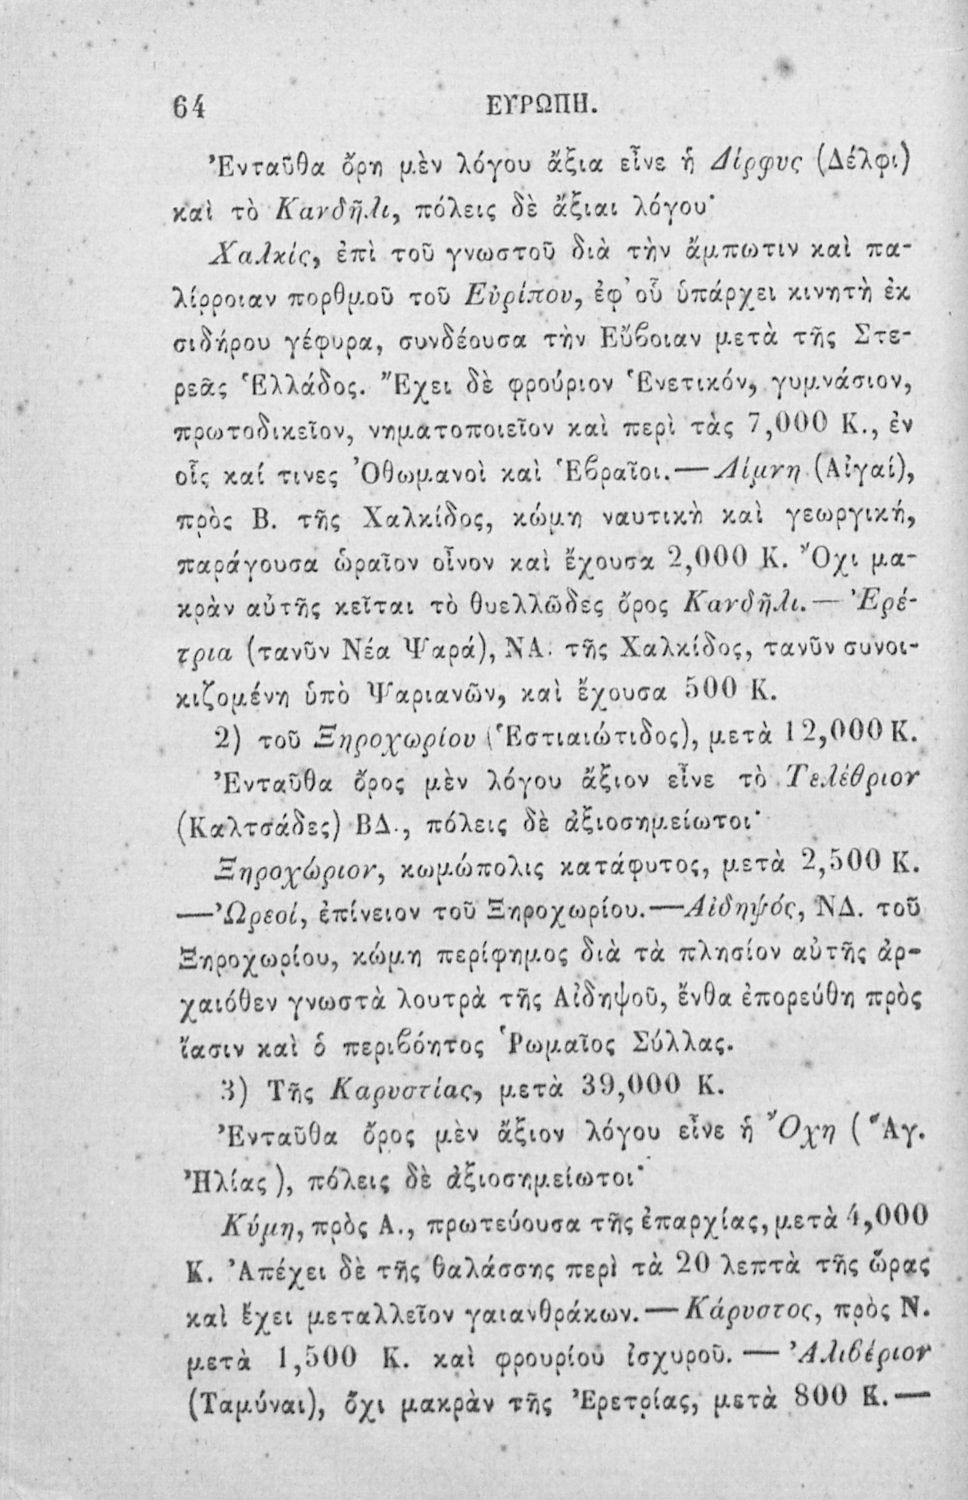 64 ΕΥΡΩΠΗ.
Ἐνταῦθα ὄρη μὲν λόγου ἄξια εἶνε ἡ Δίρφυς (Δέλφι)
καὶ τὸ Κανδῆλι, πόλεις δὲ ἄξιαι λόγου·
Χαλκίς, ἐπὶ τοῦ γνωστοῦ διὰ τὴν ἄμπωτιν καὶ πα-
λίρροιαν πορθμοῦ τοῦ Εὐρίπου, ἐφ᾽ οὗ ὑπάρχει κινητὴ ἐκ
σιδήρου γέφυρα, συνδέουσα τὴν Εὔβοιαν μετὰ τῆς Στε-
ρεᾶς Ἑλλάδος. Ἔχει δὲ φρούριον Ἑνετικόν, γυμνάσιον,
πρωτοδικεῖον, νηματοποιεῖον καὶ περὶ τὰς 7,000 Κ., ἐν
οἷς καί τινες Ὀθωμανοὶ καὶ Ἑβραῖοι.—Λίμνη (Αἰγαί),
πρὸς Β. τῆς Χαλκίδος, κώμη ναυτικὴ καὶ γεωργική,
παράγουσα ὡραῖον οἶνον καὶ ἔχουσα 2,000 Κ. Ὄχι μα-
κρὰν αὐτῆς κεῖται τὸ θυελλῶδες ὄρος Κανδῆλι.— Ἐρέ-
τρια (τανῦν Νέα Ψαρά), ΝΑ. τῆς Χαλκίδος, τανῦν συνοι-
κιζομένη ὑπὸ Ψαριανῶν, καὶ ἔχουσα 500 Κ.
2) τοῦ Ξηροχωρίου (Ἑστιαιώτιδος), μετὰ 12,000 Κ.
Ἐνταῦθα ὄρος μὲν λόγου ἄξιον εἶνε τὸ Τελέθριον
(Καλτσάδες) ΒΔ., πόλεις δὲ ἀξιοσημείωτοι·
Ξηροχώριον, κωμώπολις κατάφυτος, μετὰ 2,500 Κ.
—Ὠρεοί, ἐπίνειον τοῦ Ξηροχωρίου.—Αἰδηψός, ΝΔ. τοῦ
Ξηροχωρίου, κώμη περίφημος διὰ τὰ πλησίον αὐτῆς ἀρ-
χαιόθεν γνωστὰ λουτρὰ τῆς Αἰδηψοῦ, ἔνθα ἐπορεύθη πρὸς
ἴασιν καὶ ὁ περιβόητος Ῥωμαῖος Σύλλας.
3) Τῆς Καρυστίας, μετὰ 39,000 Κ.
Ἐνταῦθα ὄρος μὲν ἄξιον λόγου εἶνε ἡ Ὄχη (Ἅγ.
Ἠλίας), πόλεις δὲ ἀξιοσημείωτοι·
Κύμη, πρὸς Α., πρωτεύουσα τῆς ἐπαρχίας, μετὰ 4,000
Κ. Ἀπέχει δὲ τῆς θαλάσσης περὶ τὰ 20 λεπτὰ τῆς ὥρας
καὶ ἔχει μεταλλεῖον γαιανθράκων.—Κάρυστος, πρὸς Ν.
μετὰ 1,500 Κ. καὶ φρουρίου ἰσχυροῦ. — Ἀλιβέριον
(Ταμύναι), ὄχι μακρὰν τῆς Ἐρετρίας, μετὰ 800 Κ.—